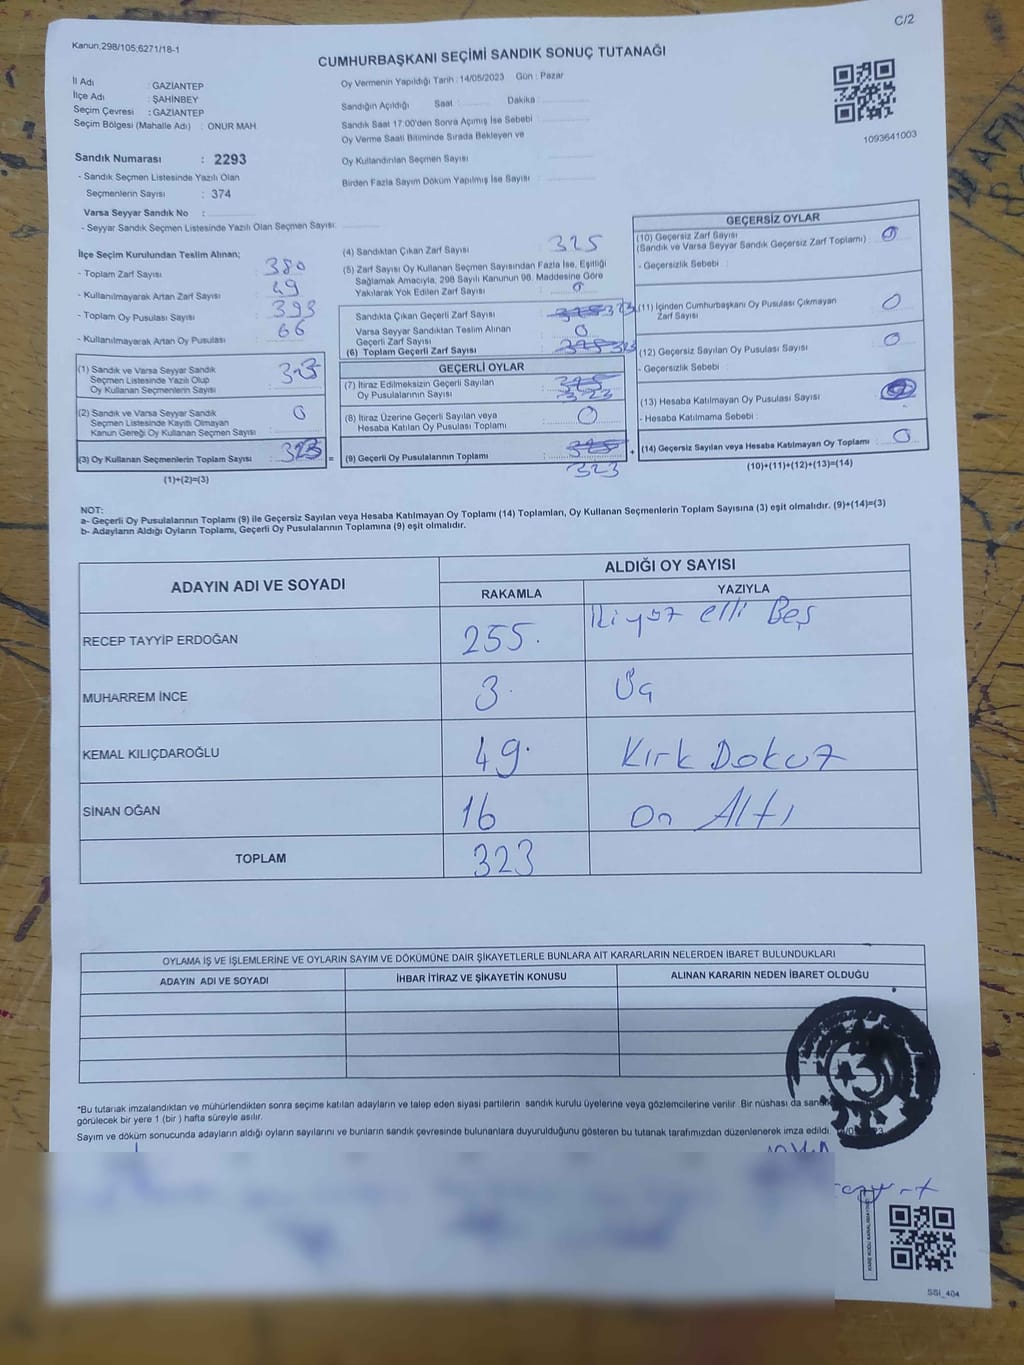 C/2
Kanun,298/105;6271/18-1
CUMHURBAŞKANI SEÇİMİ SANDIK SONUÇ TUTANAĞI
İl Adı : GAZİANTEP
İlçe Adı : ŞAHİNBEY
Seçim Çevresi : GAZİANTEP
Seçim Bölgesi (Mahalle Adı) : ONUR MAH.
Sandık Numarası : 2293
- Sandık Seçmen Listesinde Yazılı Olan
Seçmenlerin Sayısı : 374
Varsa Seyyar Sandık No :
- Seyyar Sandık Seçmen Listesinde Yazılı Olan Seçmen Sayısı:
Oy Vermenin Yapıldığı Tarih : 14/05/2023 Gün : Pazar
Sandığın Açıldığı Saat : Dakika :
Sandık Saat 17:00'den Sonra Açımış İse Sebebi :
Oy Verme Saati Bitiminde Sırada Bekleyen ve
Oy Kullandırılan Seçmen Sayısı :
Birden Fazla Sayım Döküm Yapılmış İse Sayısı :
1093641003
İlçe Seçim Kurulundan Teslim Alınan;
- Toplam Zarf Sayısı : 380
- Kullanılmayarak Artan Zarf Sayısı : 49
- Toplam Oy Pusulası Sayısı : 393
- Kullanılmayarak Artan Oy Pusulası : 66
(1) Sandık ve Varsa Seyyar Sandık
Seçmen Listesinde Yazılı Olup
Oy Kullanan Seçmenlerin Sayısı : 323
(2) Sandık ve Varsa Seyyar Sandık
Seçmen Listesinde Kayıtlı Olmayan
Kanun Gereği Oy Kullanan Seçmen Sayısı : 0
(3) Oy Kullanan Seçmenlerin Toplam Sayısı : 323 =
(1)+(2)=(3)
(4) Sandıktan Çıkan Zarf Sayısı : 325
(5) Zarf Sayısı Oy Kullanan Seçmen Sayısından Fazla İse, Eşitliği
Sağlamak Amacıyla, 298 Sayılı Kanunun 98. Maddesine Göre
Yakılarak Yok Edilen Zarf Sayısı : 0
Sandıkta Çıkan Geçerli Zarf Sayısı : 325 323
Varsa Seyyar Sandıktan Teslim Alınan
Geçerli Zarf Sayısı : 0
(6) Toplam Geçerli Zarf Sayısı : 325 323
GEÇERLİ OYLAR
(7) İtiraz Edilmeksizin Geçerli Sayılan
Oy Pusulalarının Sayısı : 325
323
(8) İtiraz Üzerine Geçerli Sayılan veya
Hesaba Katılan Oy Pusulası Toplamı : 0
(9) Geçerli Oy Pusulalarının Toplamı : 325 +
323
GEÇERSİZ OYLAR
(10) Geçersiz Zarf Sayısı : 0
(Sandık ve Varsa Seyyar Sandık Geçersiz Zarf Toplamı)
- Geçersizlik Sebebi :
(11) İçinden Cumhurbaşkanı Oy Pusulası Çıkmayan
Zarf Sayısı : 0
(12) Geçersiz Sayılan Oy Pusulası Sayısı : 0
- Geçersizlik Sebebi :
(13) Hesaba Katılmayan Oy Pusulası Sayısı :
- Hesaba Katılmama Sebebi :
(14) Geçersiz Sayılan veya Hesaba Katılmayan Oy Toplamı : 0
(10)+(11)+(12)+(13)=(14)
NOT:
a- Geçerli Oy Pusulalarının Toplamı (9) ile Geçersiz Sayılan veya Hesaba Katılmayan Oy Toplamı (14) Toplamları, Oy Kullanan Seçmenlerin Toplam Sayısına (3) eşit olmalıdır. (9)+(14)=(3)
b- Adayların Aldığı Oyların Toplamı, Geçerli Oy Pusulalarının Toplamına (9) eşit olmalıdır.
ADAYIN ADI VE SOYADI ALDIĞI OY SAYISI
RAKAMLA YAZIYLA
RECEP TAYYİP ERDOĞAN 255. İkiyüz elli Beş
MUHARREM İNCE 3. Üç
KEMAL KILIÇDAROĞLU 49. Kırk Dokuz
SİNAN OĞAN 16 On Altı
TOPLAM 323
OYLAMA İŞ VE İŞLEMLERİNE VE OYLARIN SAYIM VE DÖKÜMÜNE DAİR ŞİKAYETLERLE BUNLARA AİT KARARLARIN NELERDEN İBARET BULUNDUKLARI
ADAYIN ADI VE SOYADI İHBAR İTİRAZ VE ŞİKAYETİN KONUSU ALINAN KARARIN NEDEN İBARET OLDUĞU
*Bu tutanak imzalandıktan ve mühürlendikten sonra seçime katılan adayların ve talep eden siyasi partilerin sandık kurulu üyelerine veya gözlemcilerine verilir. Bir nüshası da
görülecek bir yere 1 (bir) hafta süreyle asılır.
Sayım ve döküm sonucunda adayların aldığı oyların sayılarını ve bunların sandık çevresinde bulunanlara duyurulduğunu gösteren bu tutanak tarafımızdan düzenlenerek imza edildi.
SSI_404